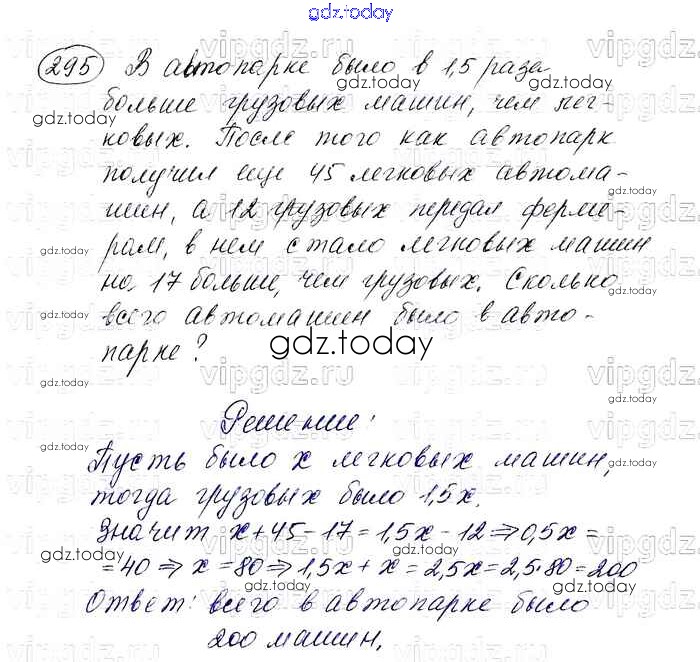 gdz.today
295 В автопарке было в 1,5 раза
больше грузовых машин, чем лег-
ковых. После того как автопарк
получил еще 45 легковых автома-
шин, а 12 грузовых передал ферме-
рам, в нем стало легковых машин
на 17 больше, чем грузовых. Сколько
всего автомашин было в авто-
парке?
gdz.today
Решение:
Пусть было x легковых машин,
тогда грузовых было 1,5x.
Значит x+45-17=1,5x-12⇒0,5x=
=40⇒x=80⇒1,5x+x=2,5x=2,5·80=200
Ответ: всего в автопарке было
200 машин.